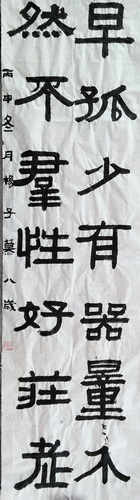 早孤少有器量介
然不羣性好莊老
丙申冬月楊子慕八歲